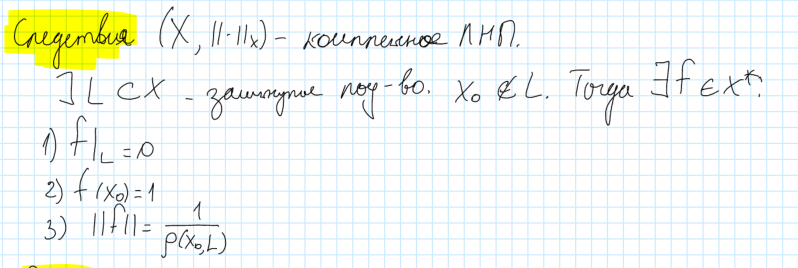 Следствия (X, ||·||ₓ) - комплексное ЛНП.
∃ L ⊂ X - замкнутое подпр-во. x₀ ∉ L. Тогда ∃ f ∈ X*:
1) f|_L = 0
2) f(x₀) = 1
3) ||f|| = 1/ρ(x₀, L)